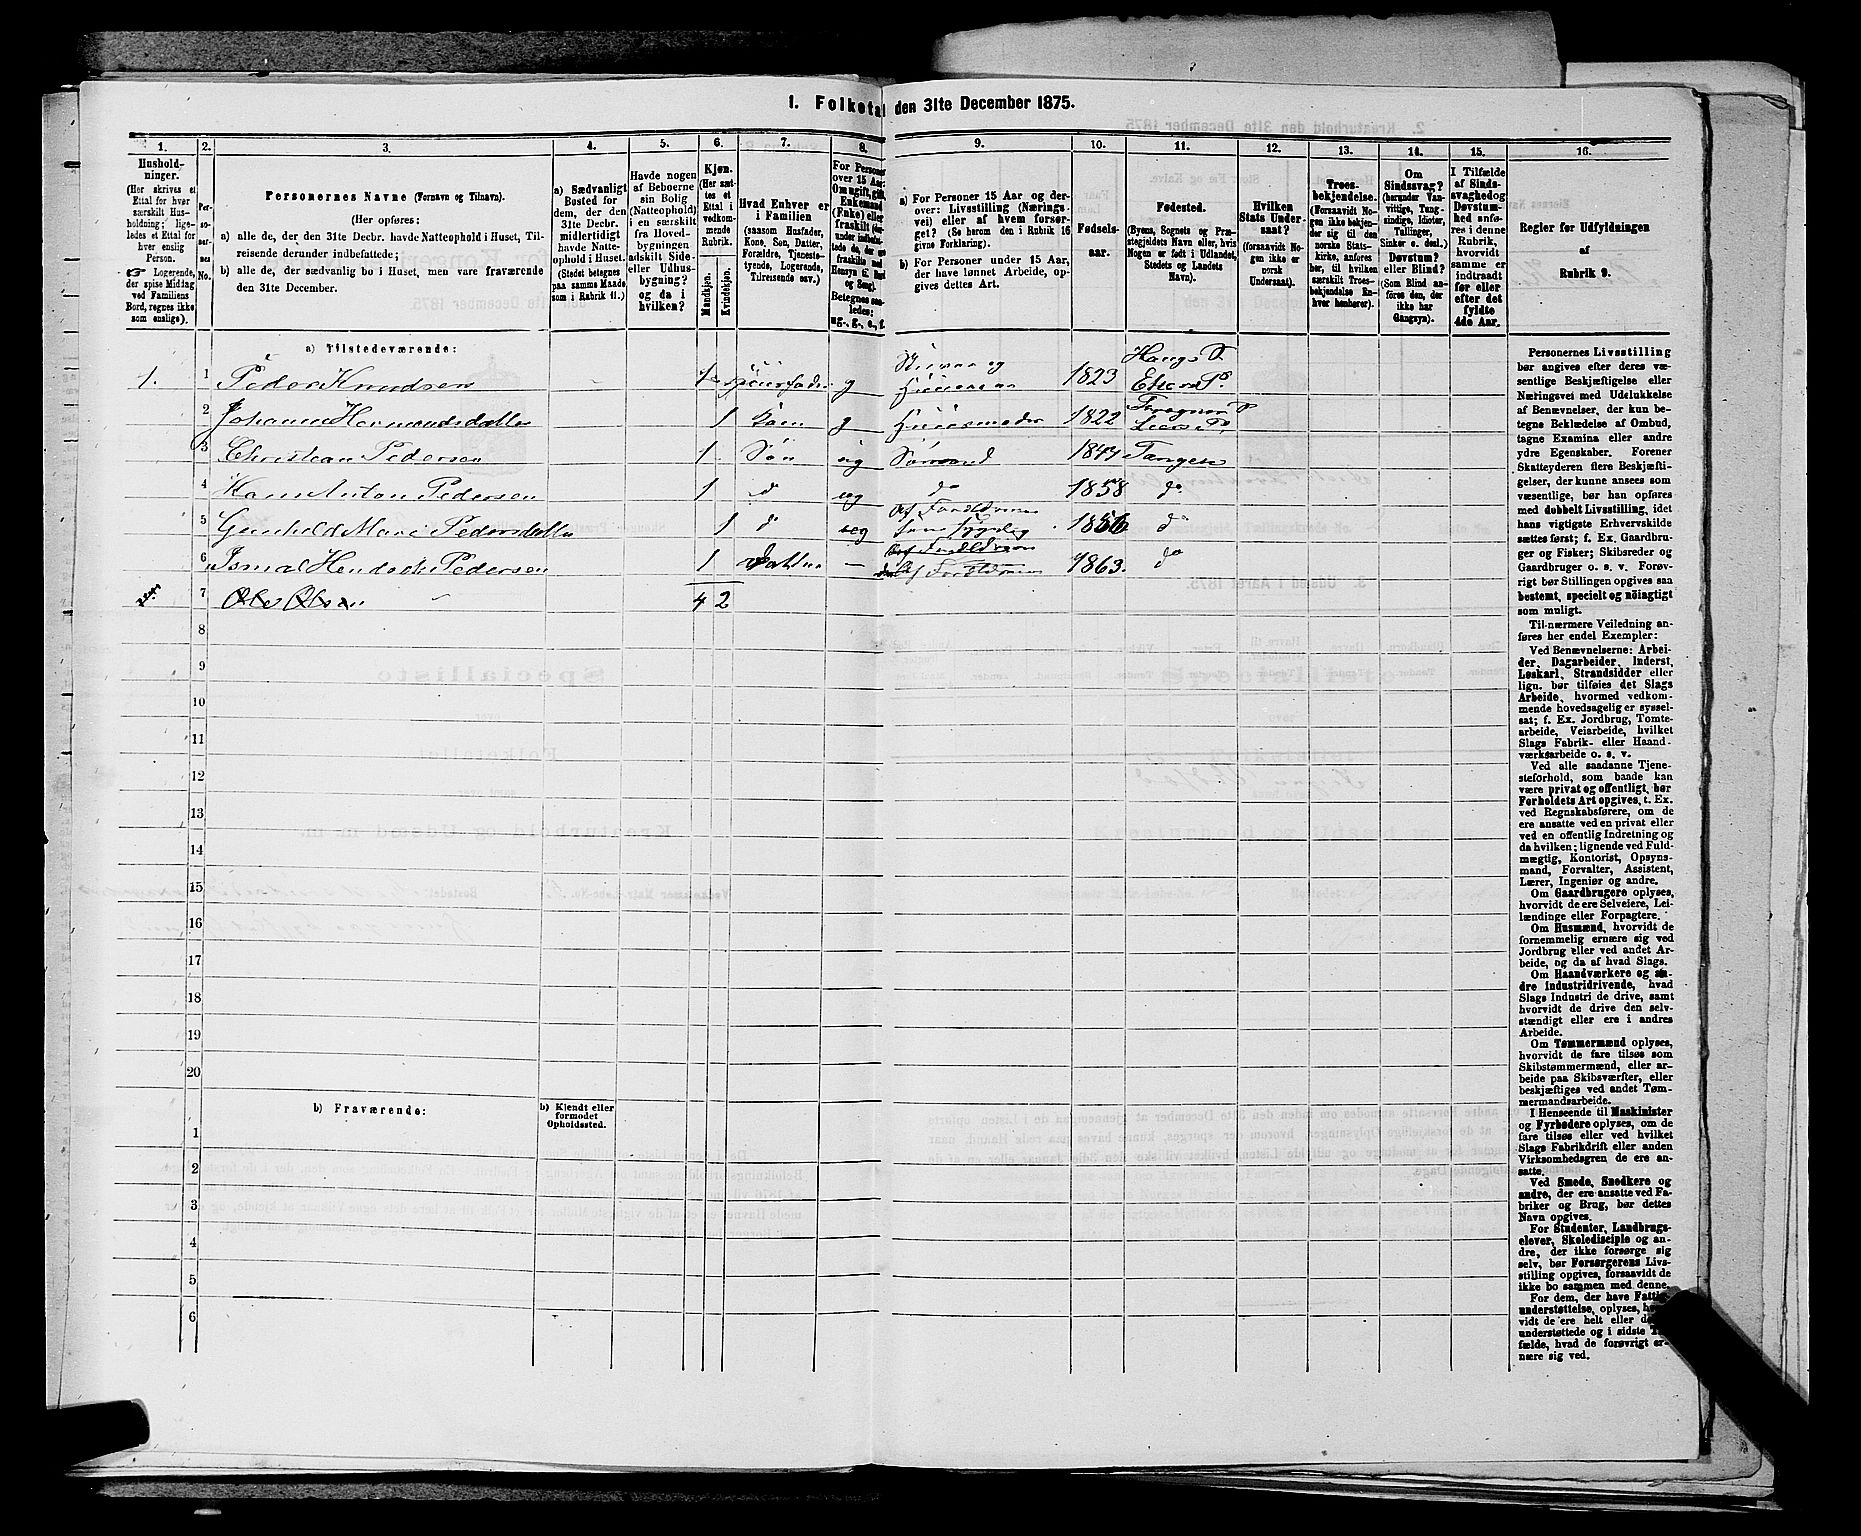 1. Folketal den 31te December 1875.
1.
2.
3.
4.
5.
6.
7.
8.
9.
10.
11.
12.
13.
14.
15.
16.
Hushold-
ninger.
(Her skrives et
Ettal for hver
særskilt Hus-
holdning; lige-
ledes et Ettal for
hver enslig
Person.
☞ Logerende,
der spise Middag
ved Familiens
Bord, regnes ikke
som enslige).
Per-
soner-
nes
No.
Personernes Navne (Fornavn og Tilnavn).
(Her opføres:
a) alle de, der den 31te Decbr. havde Natteophold i Huset, Til-
reisende derunder indbefattede;
b) alle de, der sædvanlig bo i Huset, men vare fraværende
den 31te December.
a) Sædvanligt
Bosted for
dem, der den
31te Decbr.
midlertidigt
havde Natte-
ophold i Huset.
(Stedet betegnes
paa samme Maade
som i Rubrik 11.)
Havde nogen
af Beboerne
sin Bolig
(Natteophold)
i en særskilt
fra Hoved-
bygningen
adskilt Side-
eller Udhus-
bygning?
og da i
hvilken?
Kjøn.
(Her sæt-
tes et
Ettal i
vedkom-
mende
Rubrik.
Mandkjøn.
Kvindekjøn.
Hvad Enhver er
i Familien
(saasom Husfader,
Kone, Søn, Datter,
Forældre, Tjeneste-
tyende, Logerende,
Tilreisende osv.)
For Personer
over 15 Aar:
Om ugift, gift,
Enkemand
(Enke) eller
fraskilt
Betegnes saa-
ledes:
ug., g., e., f.
a) For Personer 15 Aar og der-
over: Livsstilling (Nærings-
vei) eller af hvem forsør-
get? (Se herom den i Rubrik 16
givne Forklaring).
b) For Personer under 15 Aar,
der have lønnet Arbeide, op-
gives dettes Art.
Fødsels-
aar.
Fødested.
(Byens, Sognets og Præ-
stegjeldets Navn eller, hvis
Nogen er født i Udlandet,
Stedets og Landets
Navn).
Hvilken
Stats Under-
saat?
(forsaavidt No-
gen ikke er
norsk
Undersaat).
Troes-
bekjendelse.
(Forsaavidt No-
gen ikke bekjen-
der sig til den
norske Stats-
kirke, anføres
her, til hvilken
særskilt Troes-
bekjendelse En-
hver henhører).
Om
Sindssvag?
(herunder Van-
vittige, Tung-
sindige, Idioter,
Tullinger,
Sinker o. desl.)
Døvstum?
eller Blind?
(Som Blind an-
føres den, der
ikke har
Gangsyn).
I Tilfælde
af Sinds-
svaghed og
Døvstum-
hed anfø-
res i denne
Rubrik,
hvorvidt
samme er
indtraadt
før eller
efter det
fyldte
4de Aar.
Regler for Udfyldningen
af
Rubrik 9.
a) Tilstedeværende:
1. 1 Peder Knudsen 1 Huusfader g Huuseier 1823 Haugs S.
2 1 Kone g Huusmoder 1822
3 Christian Pedersen 1 Søn ug Sømand 1844 Tangen
4 Hans Anton Pedersen 1 d ug do 1858 do
5 Gunhild Marie Pedersdatter 1 d ug 1856 do
6 Pedersen 1 Datter — Af Forældrene 1863. do
7 Ole Olsen 4 2
8
9
10
11
12
13
14
15
16
17
18
19
20
b) Fraværende:
b) Kjendt eller
formodet
Opholdssted.
1
2
3
4
5
6
Personernes Livsstilling
bør angives efter deres væ-
sentlige Beskjæftigelse eller
Næringsvei med Udelukkelse
af Benævnelser, der kun be-
tegne Beklædelse af Ombud,
tagne Examina eller andre
ydre Egenskaber. Forener
Skatteyderen flere Beskjæfti-
gelser, der kunne ansees som
væsentlige, bør han opføres
med dobbelt Livsstilling, idet
hans vigtigste Erhvervskilde
sættes først; f. Ex. Gaardbru-
ger og Fisker; Skibsreder og
Gaardbruger o. s. v. Forøv-
rigt bør Stillingen opgives saa
bestemt, specielt og nøiagtigt
som muligt.
Til nærmere Veiledning an-
føres her endel Exempler:
Ved Benævnelserne: Arbei-
der, Dagarbeider, Inderst,
Løskarl, Strandsidder eller
lign. bør tilføies det Slags
Arbeide, hvormed vedkom-
mende hovedsagelig er syssel-
sat; f. Ex. Jordbrug, Tomte-
arbeide, Veiarbeide, hvilket
Slags Fabrik- eller Haand-
værksarbeide o. s. v.
Ved alle saadanne Tjene-
steforhold, som baade kan
være privat og offentligt, bør
Forholdets Art opgives, t. Ex.
ved Regnskabsførere, om de
ere ansatte ved en privat eller
ved en offentlig Indretning og
da hvilken; lignende ved Fuld-
mægtig, Kontorist, Opsyns-
mand, Forvalter, Assistent,
Lærer, Ingeniør og andre.
Om Gaardbrugere oplyses,
hvorvidt de ere Selveiere, Lei-
lændinge eller Forpagtere.
Om Husmænd, hvorvidt de
fornemmelig ernære sig ved
Jordbrug eller ved andet Ar-
beide, og da af hvad Slags.
Om Haandværkere og an-
dre industridrivende, hvad
Slags Industri de drive, samt
hvorvidt de drive den selv-
stændigt eller ere i andres
Arbeide.
Om Tømmermænd oplyses,
hvorvidt de fare tilsøs som
Skibstømmermænd, eller ar-
beide paa Skibsværfter, eller
beskjæftiges ved andet Tøm-
mermandsarbeide.
I Henseende til Maskinister
og Fyrbødere oplyses, om de
fare tilsøs eller ved hvilket
Slags Fabrikdrift eller anden
Virksomhedsgren de ere an-
satte.
Ved Smede, Snedkere og
andre, der ere ansatte ved Fa-
briker og Brug, bør dettes
Navn opgives.
For Studenter, Landbrugs-
elever, Skoledisciple og an-
dre, der ikke forsørge sig
selv, bør Forsørgerens Livs-
stilling opgives, forsaavidt de
ikke bo sammen med denne.
For dem, der have Fattig-
understøttelse, oplyses, hvor-
vidt de ere helt eller
understøttede og i sidste
fælde, hvad de forøvrigt er-
nære sig ved.